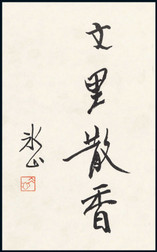 文里散香
冰山